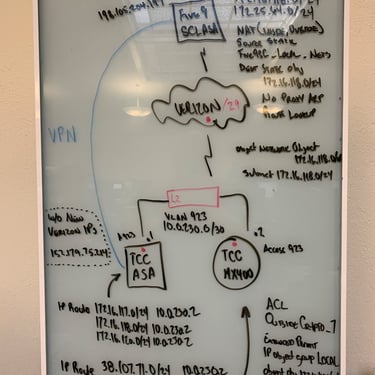 198.105.204.197
Five9
SCLASA
172.25.64.0/24
NAT (INSIDE, OUTSIDE)
Source Static
Five9SC_Local_Nets
Dest Static Obj
172.16.118.0/24
No Proxy ARP
Route Lookup
VERIZON /29
VPN
Object Network Object
172.16.118.0/24
Subnet 172.16.118.0/24
L2
VLAN 923
10.0.230.0/30
w/o New
Verizon IPs
152.179.75.214
.1
.2
TCC
ASA
TCC
MX400
Access 923
IP Route 172.16.117.0/24 10.0.230.2
172.16.118.0/24 10.0.230.2
172.16.120.0/24 10.0.230.2
IP Route 38.107.71.0/24 10.0.230.2
ACL
Outside Crypto_7
Extended Permit
IP Object group LOCAL